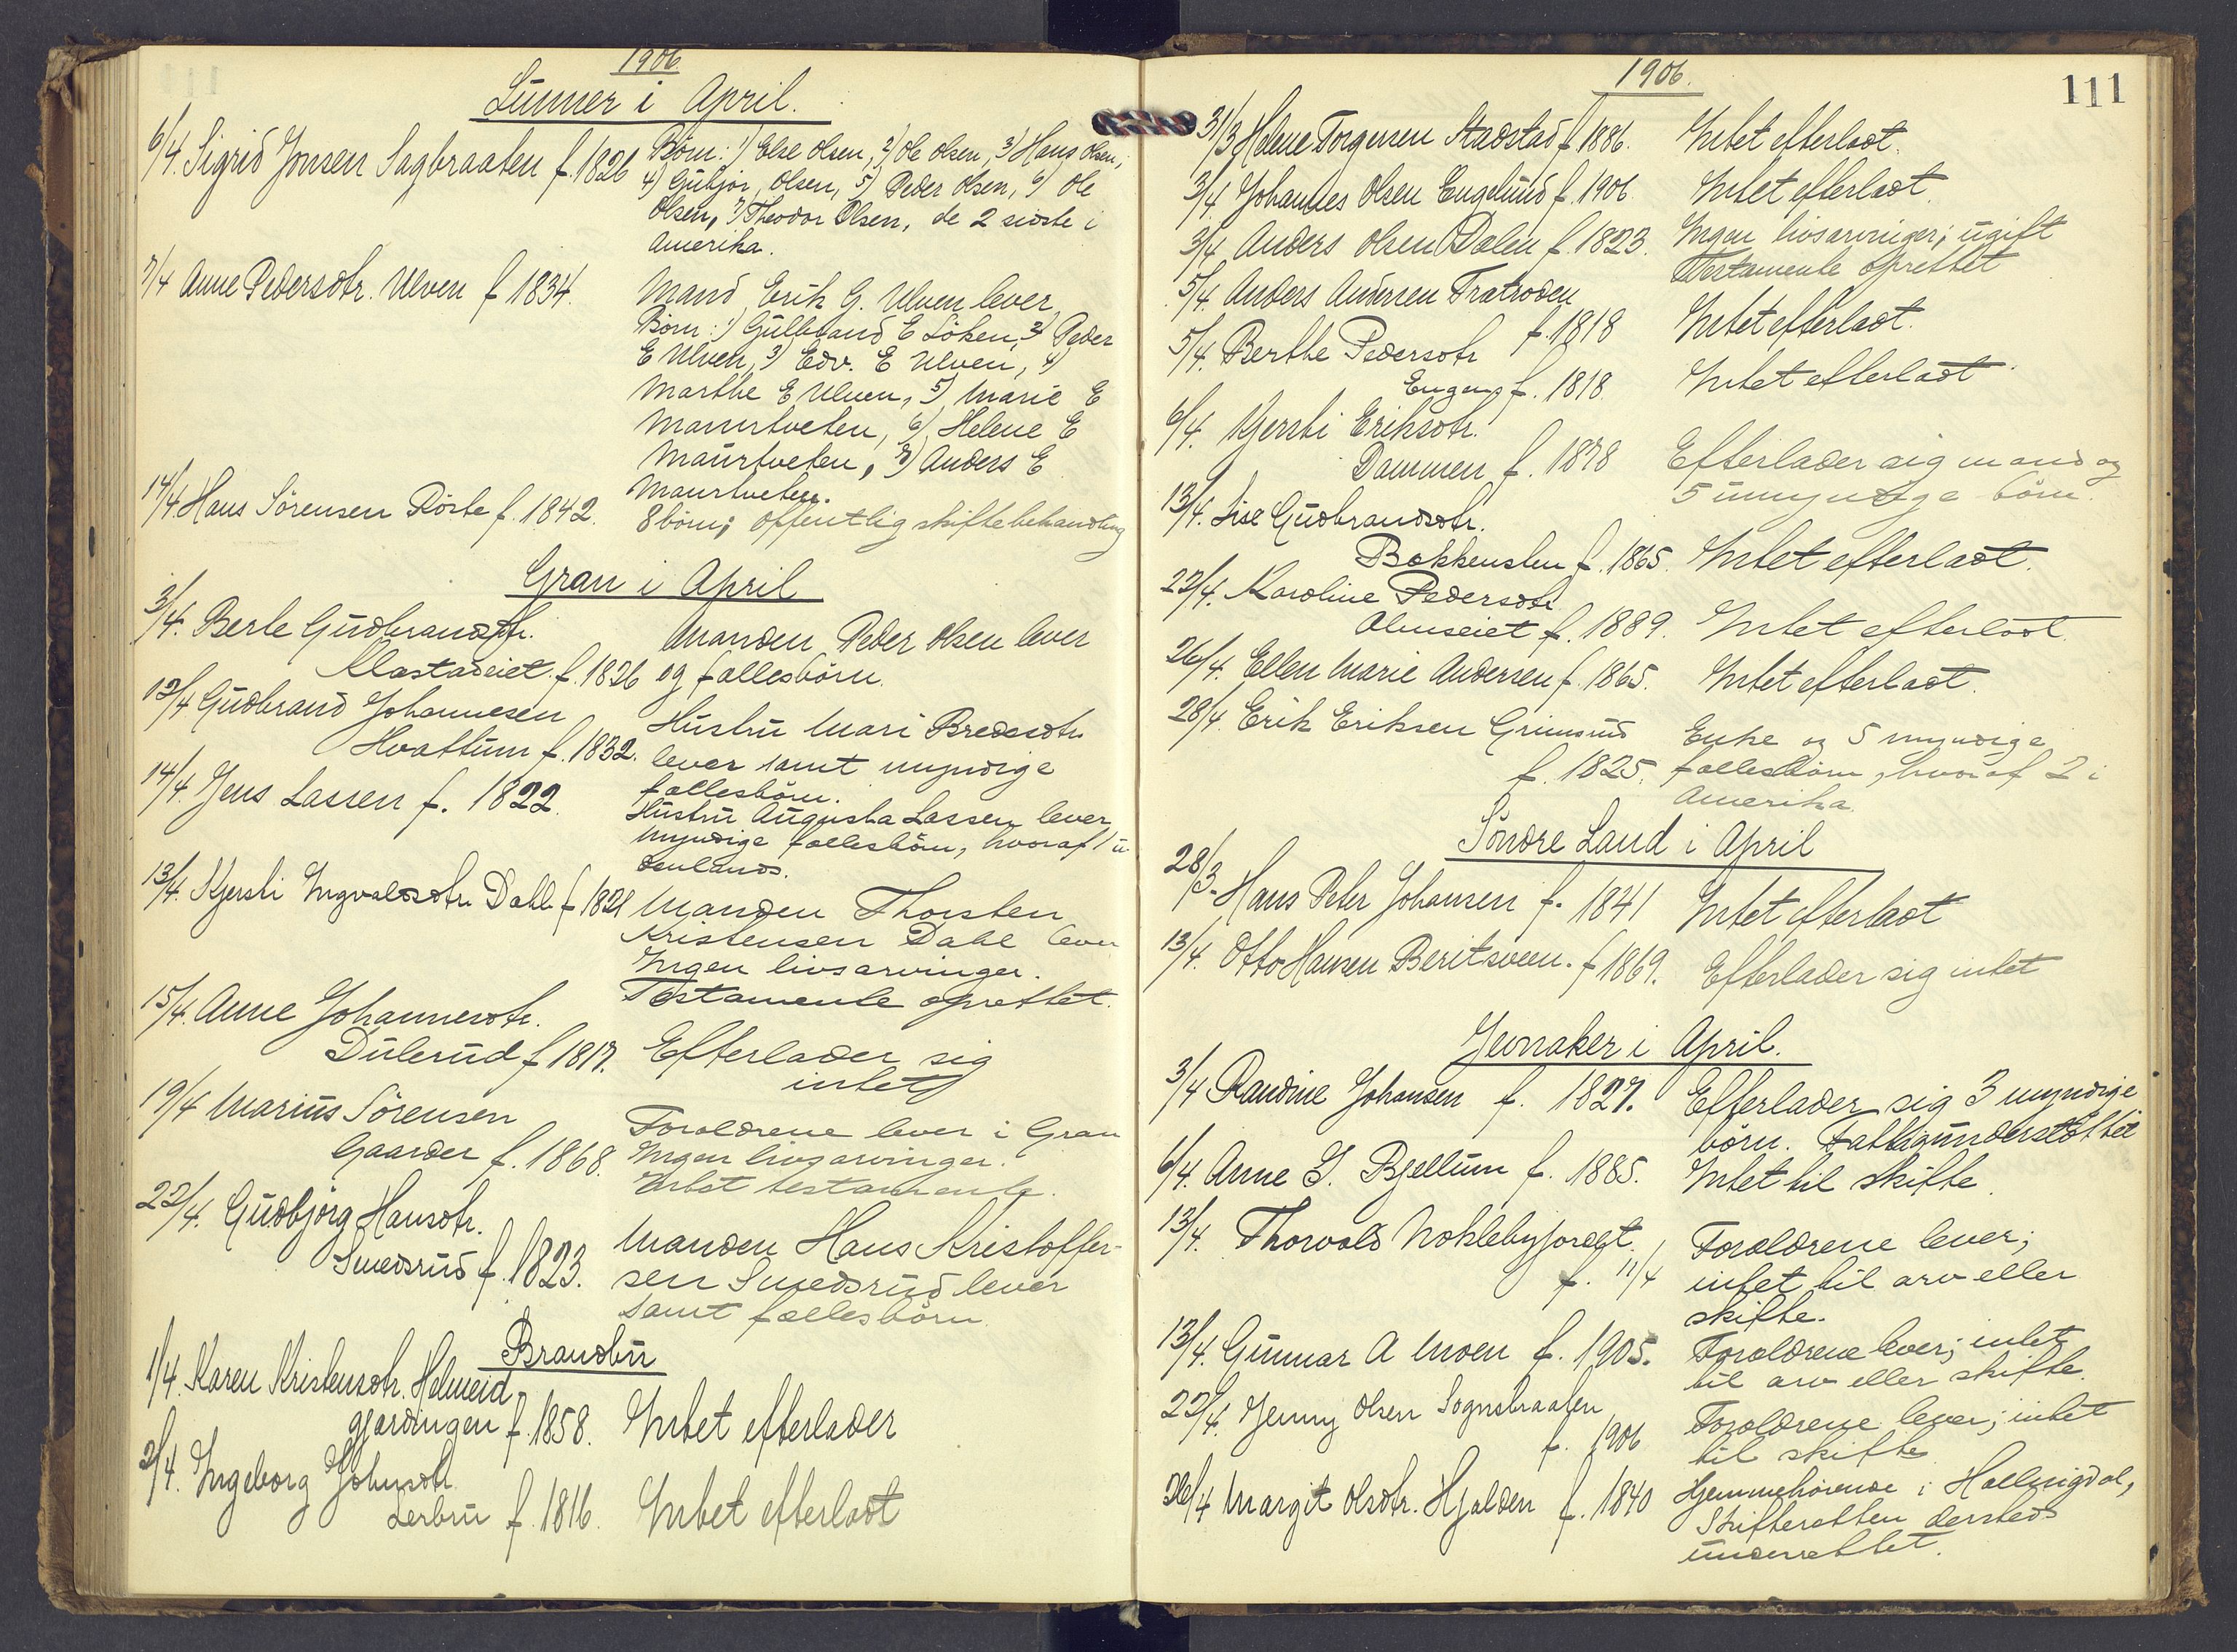 1906.
Lunner i April.
6/4. Sigrid Jonsen Sagbraaten f. 1826 Børn: 1) Else Olsen, 2) Ole Olsen, 3) Hans Olsen,
4) Gubjør, Olsen, 5) Peder Olsen, 6) Ole
Olsen, 7) Theodor Olsen, de 2 sidste i
Amerika.
7/4 Anne Pedersdtr. Ulven f 1834. Mand Erik G. Ulven lever
Børn: 1) Gulbrand E Løken, 2) Peder
E Ulven, 3) Edv. E Ulven, 4)
Marthe E Ulven, 5) Marie E
Maurtveten, 6) Helene E
Maurtveten, 7) Anders E
Maurtveten.
14/4. Hans Sørensen Røste f. 1842. 8 børn; offentlig skiftebehandling
Gran i April
3/4. Berte Gudbrandsdtr. Manden Peder Olsen lever
Klastadeiet f. 1826 og fællesbørn.
12/4 Gudbrand Johannesen Hustru Mari Bredesdtr
Hvattum f. 1832. lever samt myndige
fællesbørn.
14/4. Jens Lassen f. 1822. Hustru Augusta Lassen lever
myndige fællesbørn, hvoraf 1 u-
denlands.
13/4. Kjersti Ingvalds­dtr. Dahl f 1821 Manden Thorsten
Kristensen Dahl lever
Ingen livsarvinger.
Testamente oprettet.
15/4. Anne Johannesdtr.
Dulerud f 1817. Efterlader sig
intet
19/4 Marius Sørensen Forældrene lever i Gran
Gaarder f. 1868. Ingen livsarvinger.
Intet testamente.
22/4. Gudbjørg Hansdtr. Manden Hans Kristoffer-
Smedsrud f. 1823. sen Smedsrud lever
samt fællesbørn.
Brandbu
1/4. Karen Kristensdtr. Helmeid-
gjordingen f. 1858. Intet efterlader
2/4. Ingeborg Johnsdtr
Lerbru f. 1816. Intet efterladt
1906.
111
31/3 Helene Torgersen Stadstad f 1886. Intet efterladt.
3/4. Johannes Olsen Engelund f. 1906 Intet efterladt.
3/4. Anders Olsen Dalen f. 1823. Ingen livsarvinger; ugift
Testamente oprettet
5/4. Anders Andersen
f. 1818 Intet efterladt.
5/4. Berthe Pedersdtr
Engen f. 1818. Intet efterladt
6/4. Kjersti Eriksdtr.
Dammen f. 1878 Efterlader sig mand og
5 umyndige børn.
13/4. Lise Gudbrandsdtr.
Bokkensten f. 1865. Intet efterladt.
22/4. Karoline Pedersdtr
Almseiet f. 1889. Intet efterladt.
26/4. Ellen Marie Andersen f. 1865. Intet efterladt.
28/4. Erik Eriksen Grimsrud Enke og 5 myndige
f. 1825. fællesbørn, hvoraf 2 i
Amerika.
Søndre Land i April
28/3. Hans Peter Johansen f. 1841 Intet efterladt
13/4. Otto Hansen Beritsveen. f 1869. Efterlader sig intet
Jevnaker i April.
3/4 Randine Johansen f. 1827. Efterlader sig 3 myndige
børn. Fattigunderstøttet
6/4. Anne G. Bjellum f. 1885. Intet til skifte.
13/4. Thorvald Noklebyfordgt. Forældrene lever;
f. 11/4 intet til arv eller
skifte.
13/4. Gunnar A Moen f. 1905. Forældrene lever; intet
til arv eller skifte.
22/4. Jenny Olsen Sognsbraaten Forældrene lever; intet
f. 1906 til skifte
26/4 Margit Olsdtr. Hjalden f. 1840 Hjemmehørende i Hallingdal,
Skifteretten dersteds
underrettet.